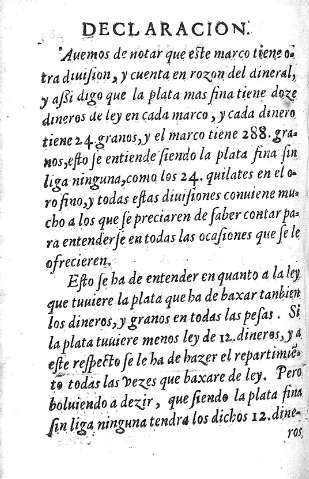 DECLARACION.
Auemos de notar que este marco tiene o-
tra diuision, y cuenta en rozon del dineral,
y aſsi digo que la plata mas fina tiene doze
dineros de ley en cada marco, y cada dinero
tiene 24. granos, y el marco tiene 288. gra-
nos, eſto ſe entiende ſiendo la plata fina ſin
liga ninguna, como los 24. quilates en el o-
ro fino, y todas eſtas diuiſiones conuiene mu-
cho a los que ſe preciaren de ſaber contar pa-
ra entenderſe en todas las ocaſiones que ſe le
ofrecieren.
Eſto ſe ha de entender en quanto a la ley
que tuuiere la plata que ha de baxar tanbien
los dineros, y granos en todas las peſas. Si
la plata tuuiere menos ley de 12. dineros, y a
eſte reſpecto ſe le ha de hazer el repartimiẽ-
to todas las vezes que baxare de ley. Pero
boluiendo a dezir, que ſiendo la plata fina
ſin liga ninguna tendra los dichos 12. dine-
ros